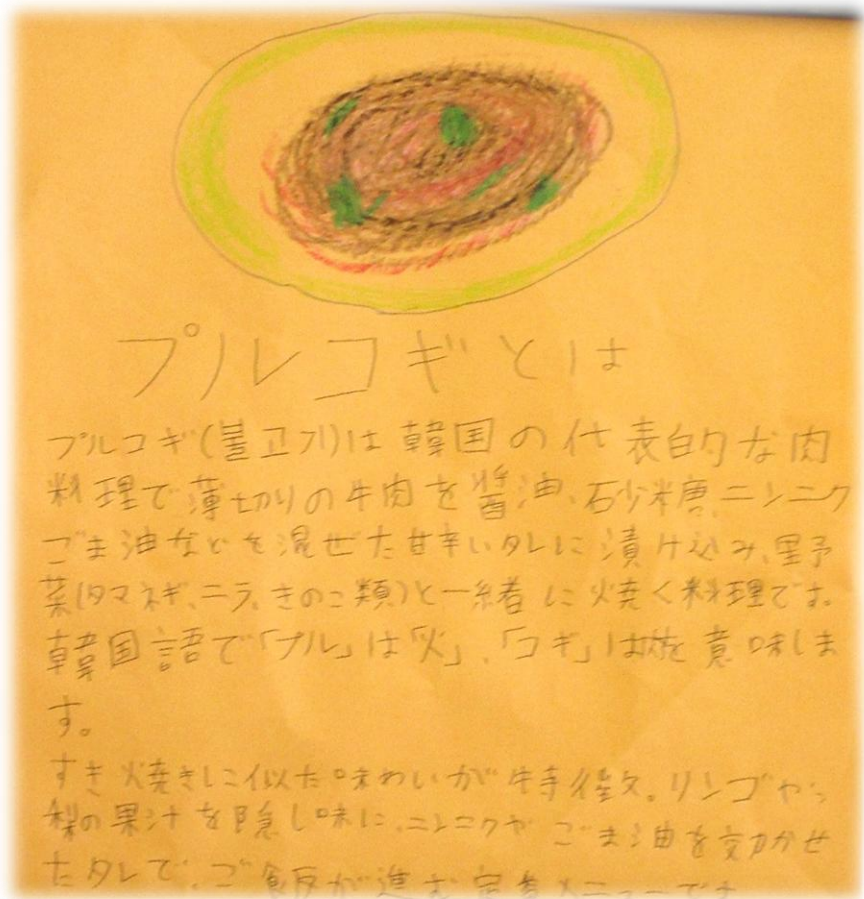 プルコギとは
プルコギ(불고기)は韓国の代表的な肉
料理で薄切りの牛肉を醤油、砂糖、ニンニク
ごま油などを混ぜた甘辛いタレに漬け込み、野
菜(タマネギ、ニラ、きのこ類)と一緒に焼く料理です。
韓国語で「プル」は「火」、「コギ」は を意味しま
す。
すき焼きに似た味わいが特徴。リンゴやっ
梨の果汁を隠し味に、ニンニクや ごま油を効かせ
たタレで、ご飯が進む定番メニューです